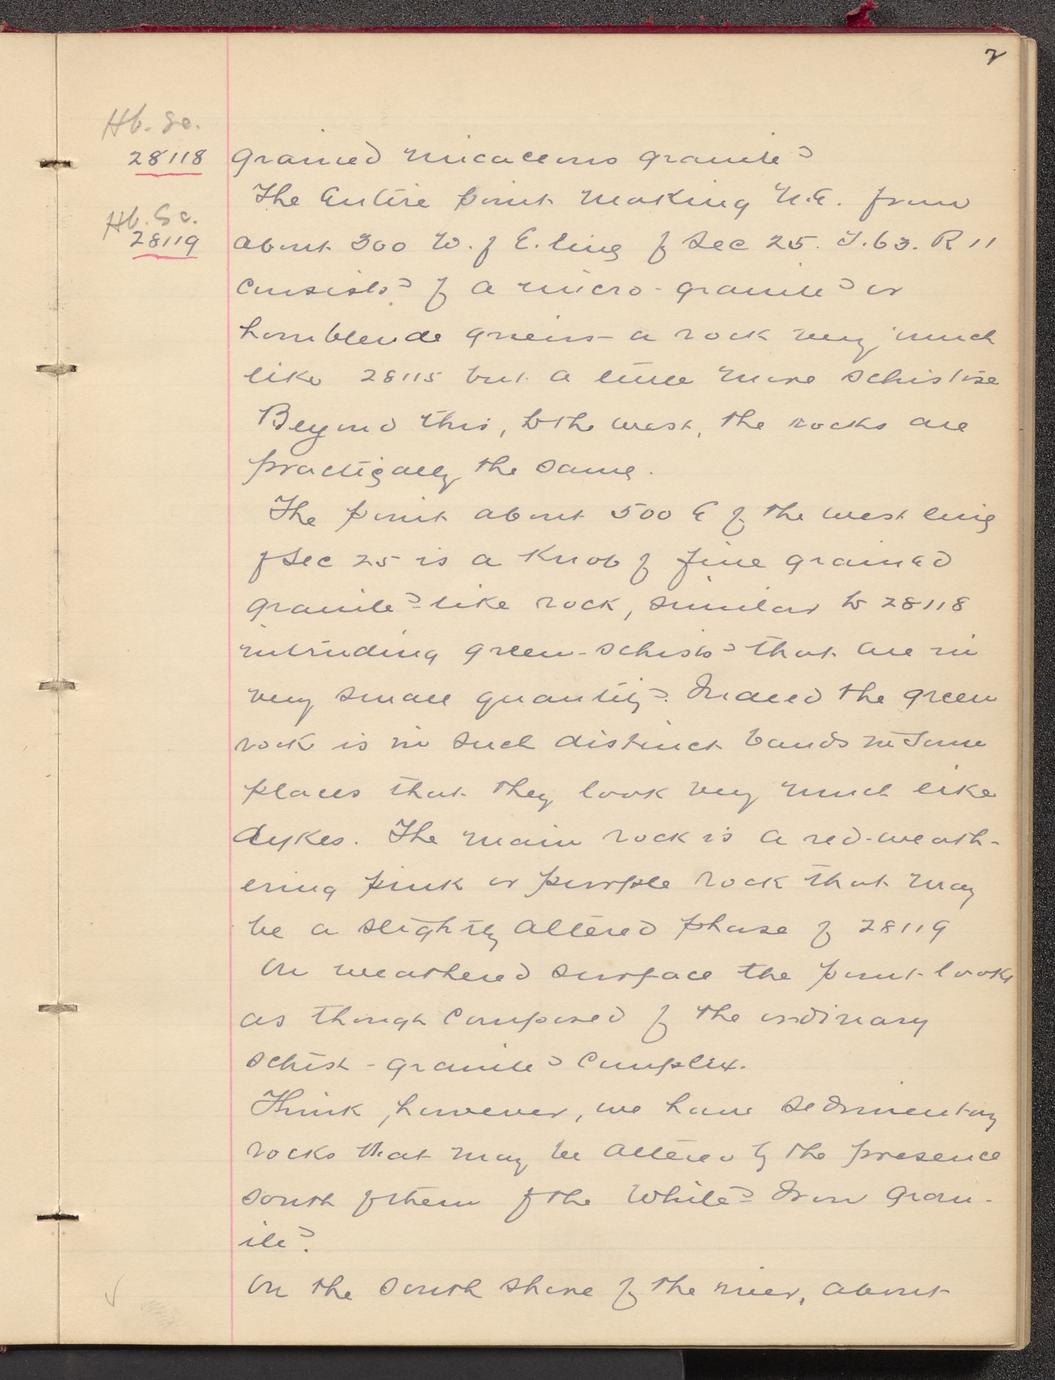 2
Hb. Sc.
28118 grained micaceous granite
The entire point making N.E. from
Hb. Sc.
28119 about 300 W. of E. line of Sec 25. T. 63. R 11
consists of a micro-granite or
hornblende gneiss - a rock very much
like 28115 but a little more schistose
Beyond this, to the west, the rocks are
practically the same.
The point about 500 E of the west line
of Sec 25 is a knob of fine grained
granite-like rock, similar to 28118
intruding green-schists that are in
very small quantity. Indeed the green
rock is in such distinct bands in some
places that they look very much like
dykes. The main rock is a red-weath-
ering pink or purple rock that may
be a slightly altered phase of 28119
On weathered surface the point looks
as though composed of the ordinary
schist-granite complex.
Think, however, we have sedimentary
rocks that may be altered by the presence
south of them of the White Iron Gran-
ite.
On the south shore of the river, about